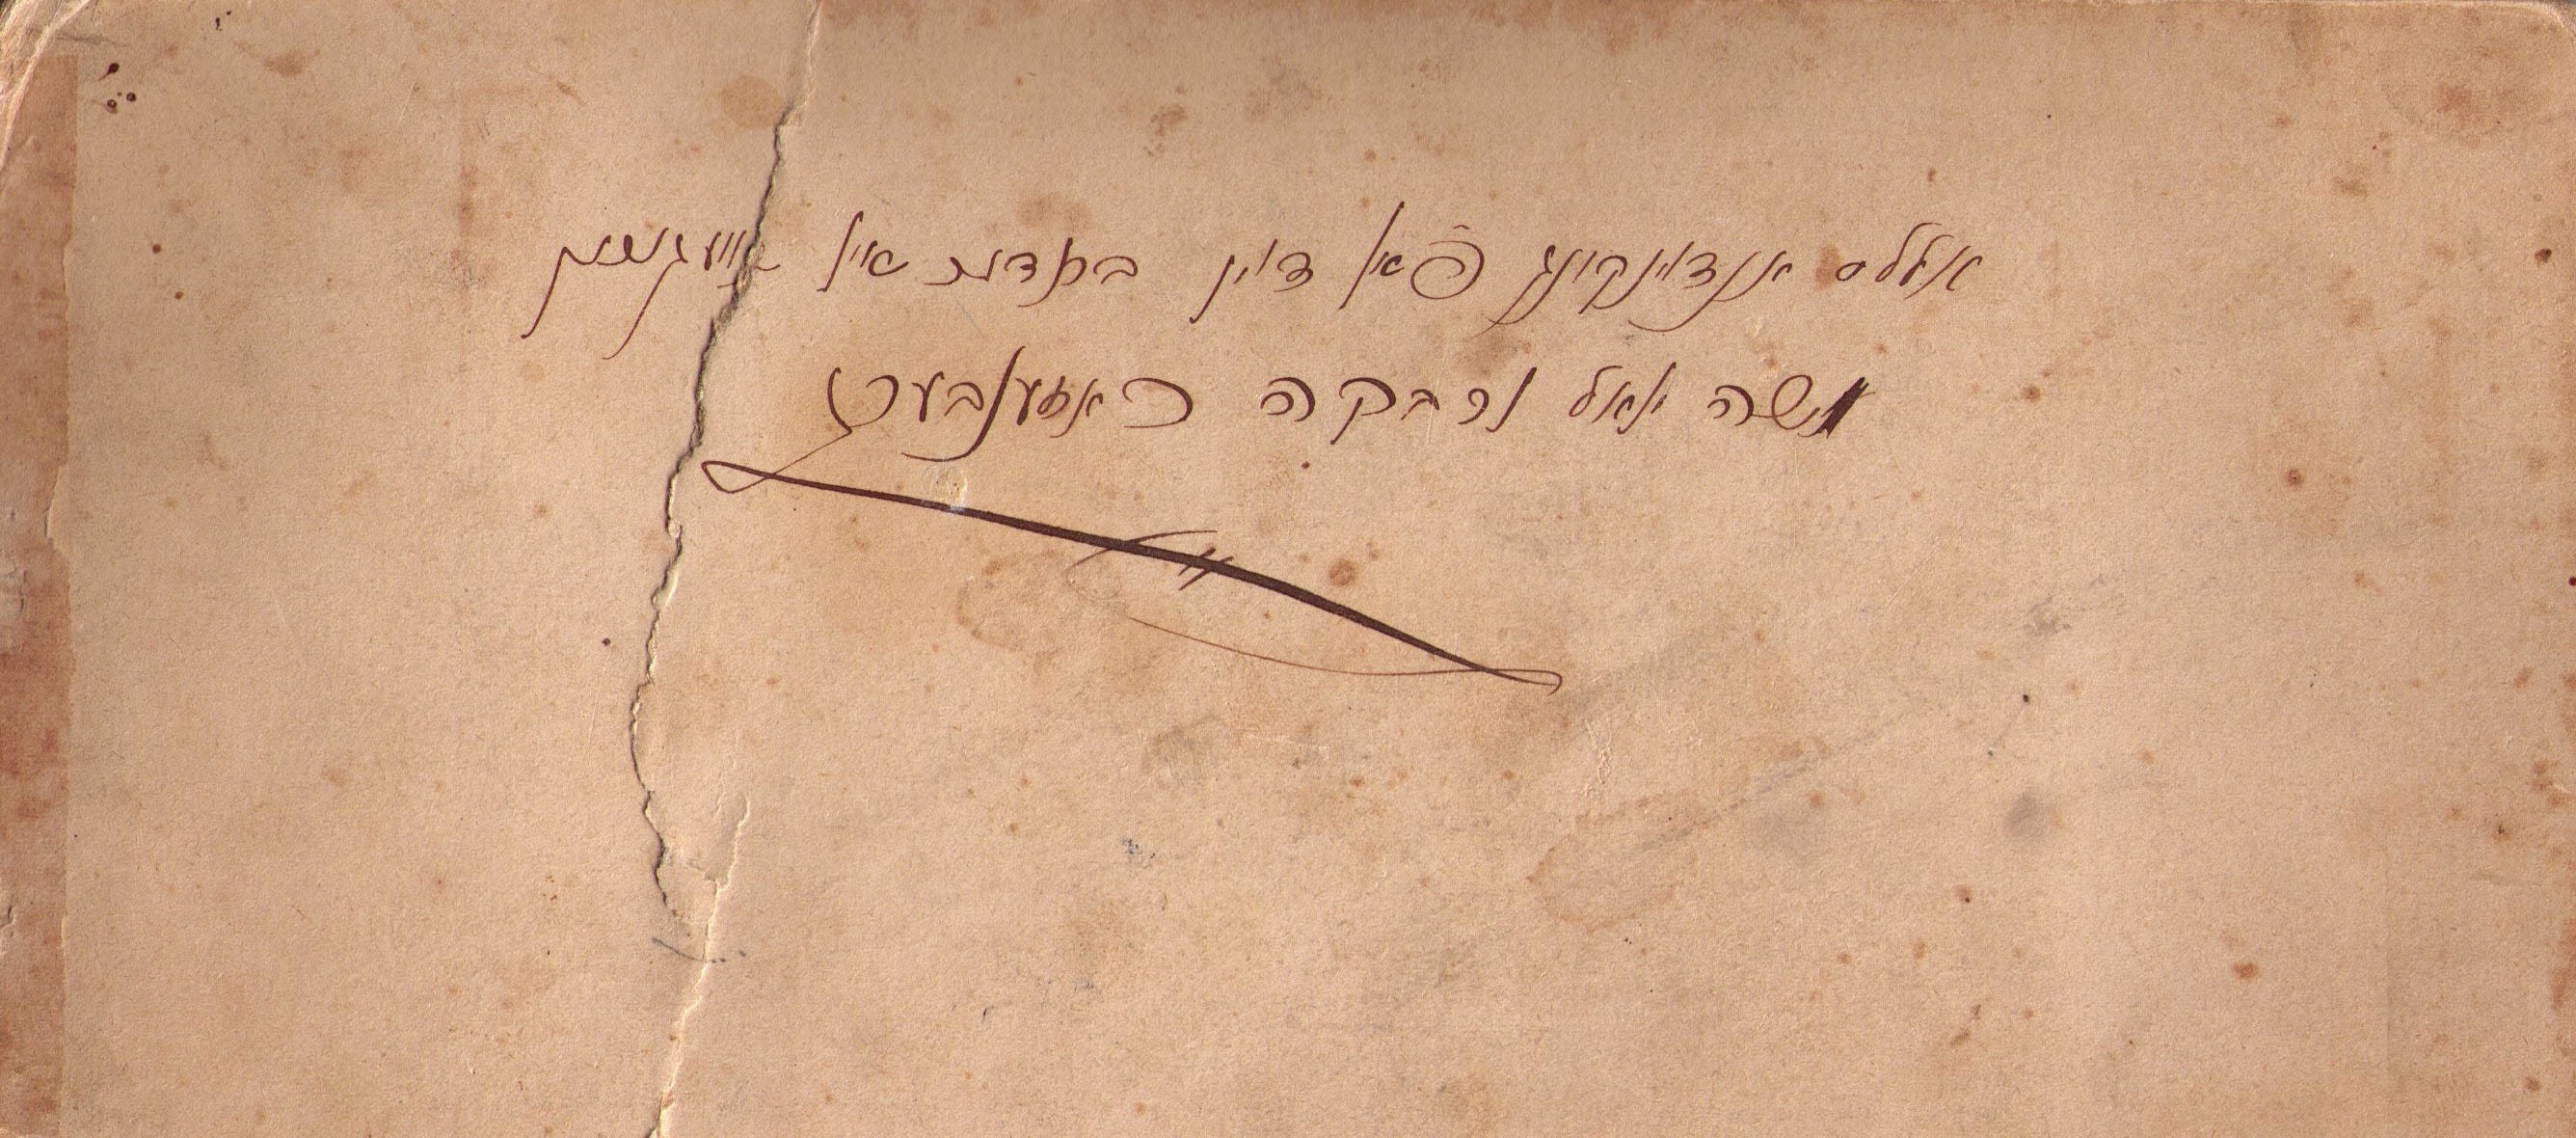 אללס אנדוינקונג פאן דוין ברודער אין שוועגערין
משה יואל ורבקה ראזענבערג